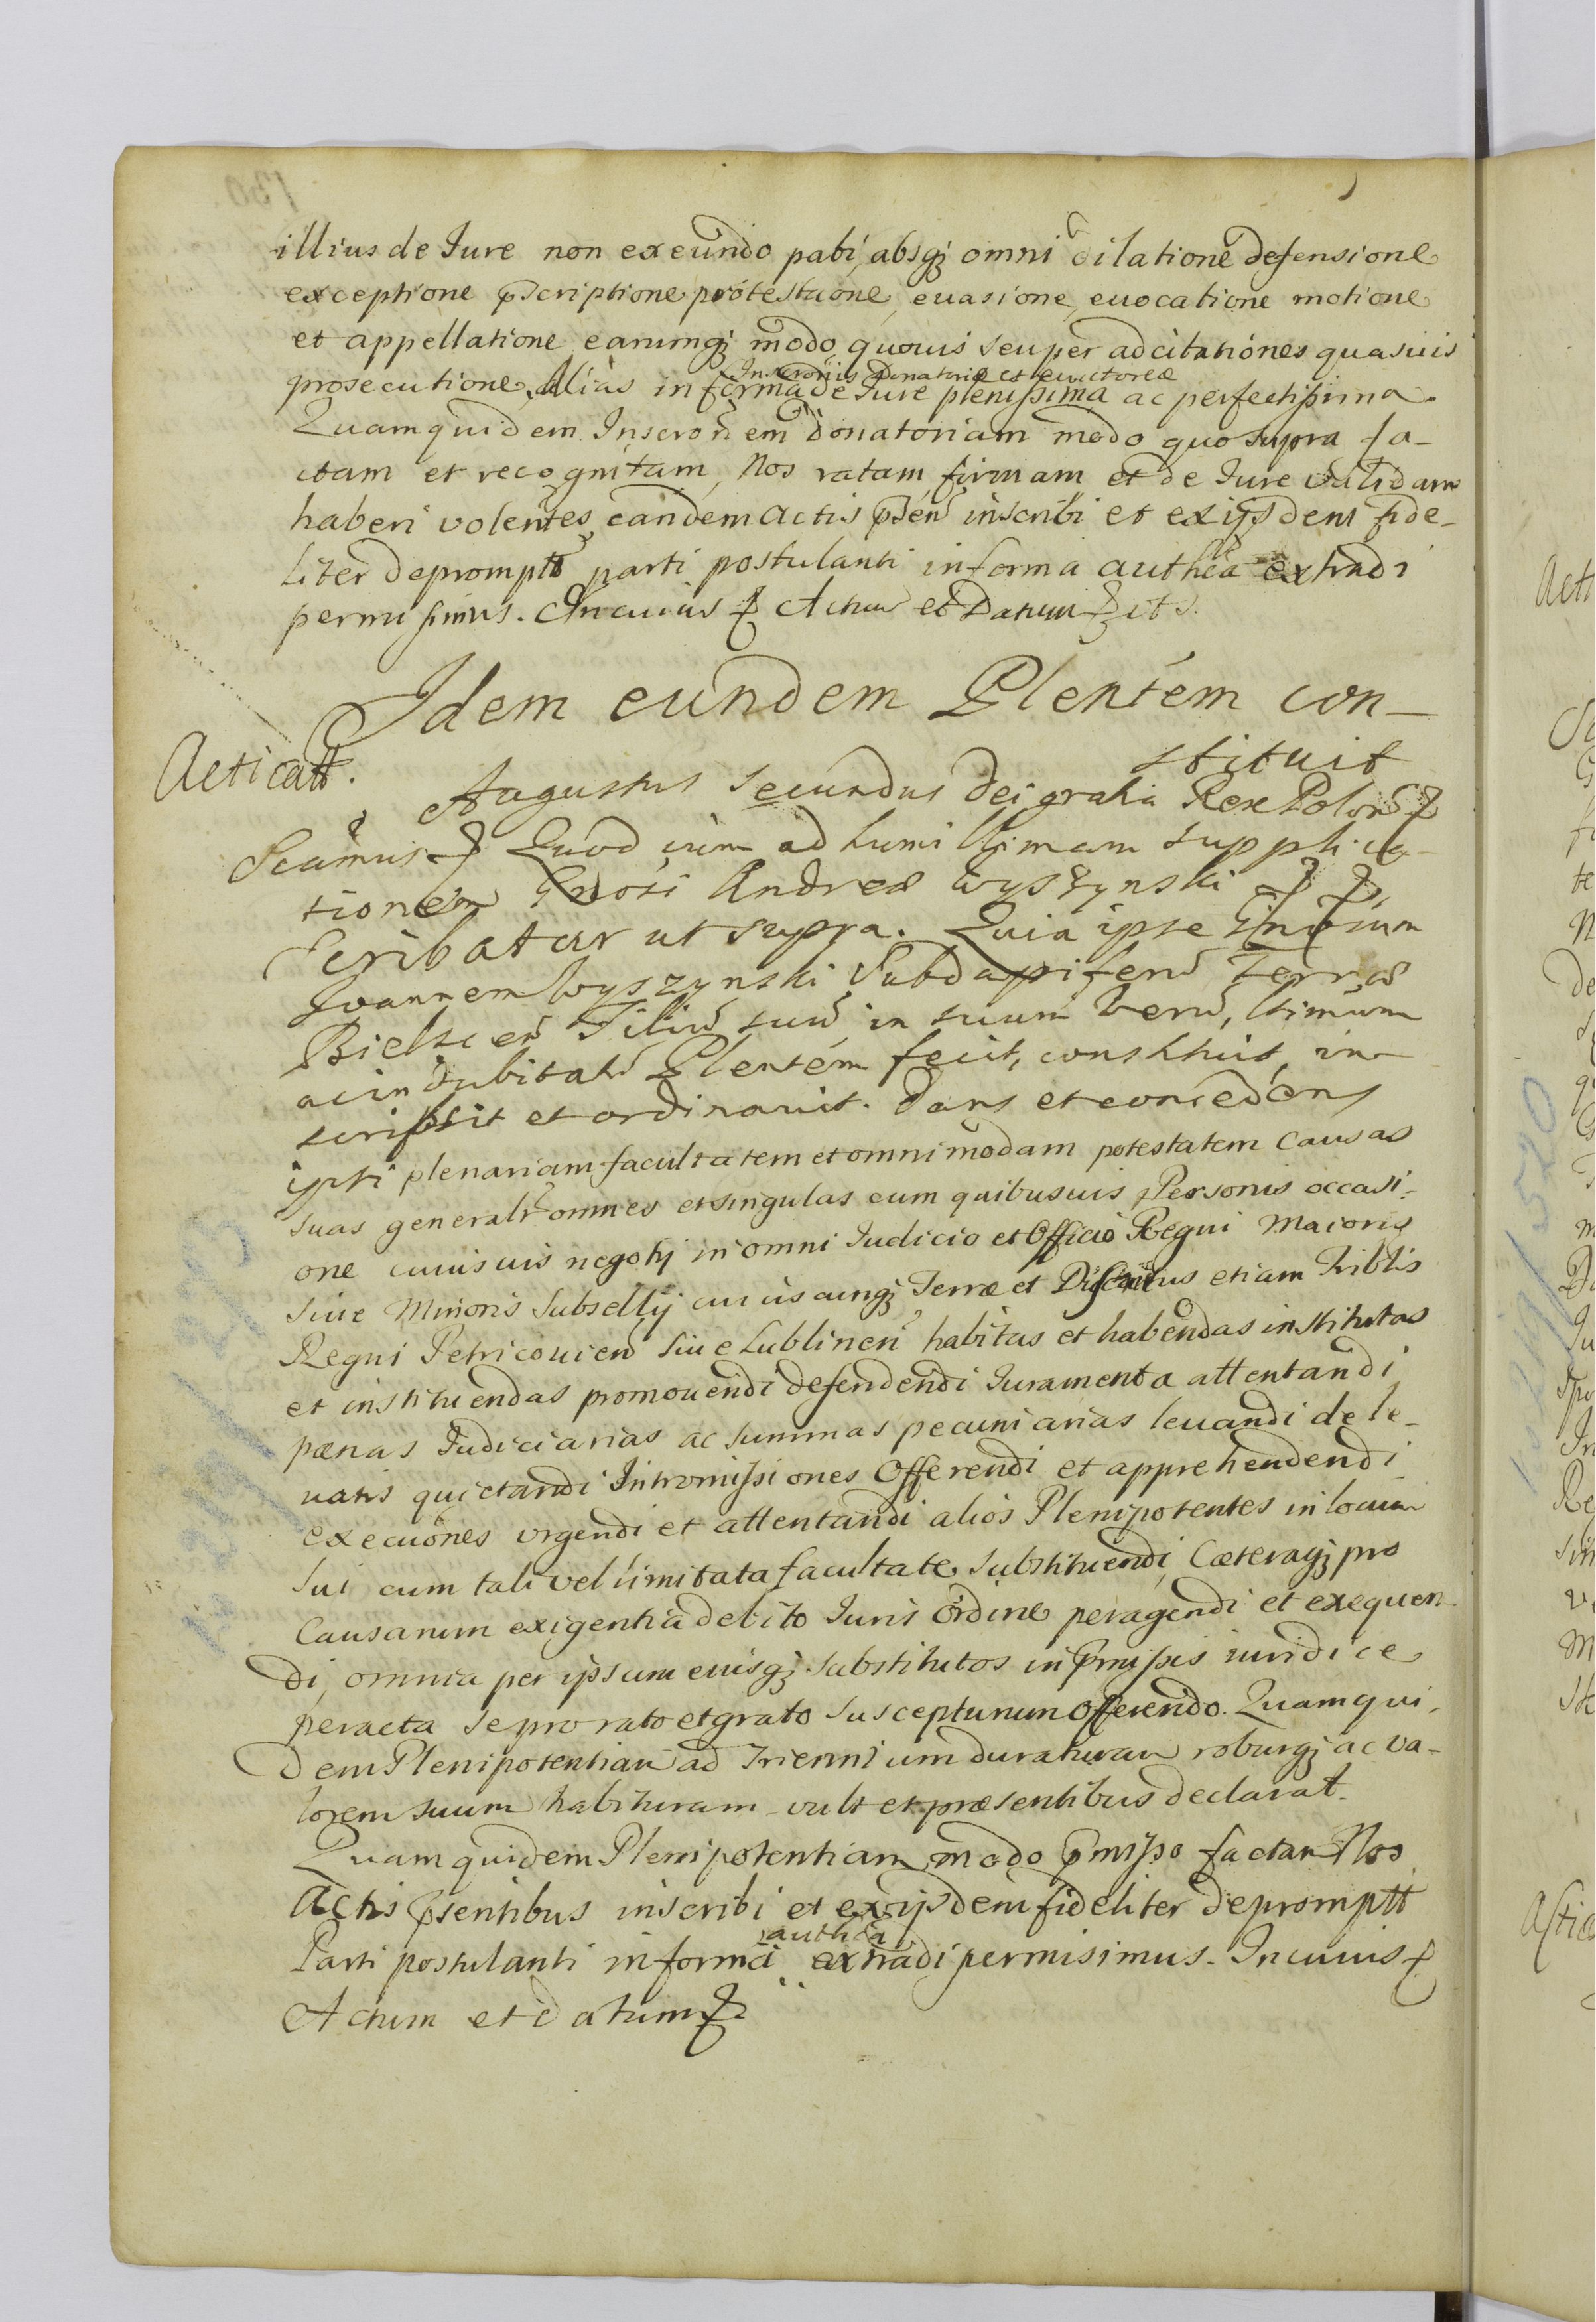 illius de Jure non exeundo pabi, absq; omni dilatione defensione
exceptione pscriptione protestaone, evasione, evocatione motione
et appellatione earumq; modo quovis seu per adcitationes quasvis
Inscroniis Donatoriæ et evictoreæ
prosecutione, Alias in forma de Jure plenissima ac perfectissima.
Quamquidem Inscronem donatoriam modo quo supra fa-
ctam et recognitam, Nos ratam firmam et de Jure validam
haberi volentes, eandem Actis psen inscribi et ex ijsdem fide-
liter deprompt parti postulanti in forma authca extradi
permisimus. In cuius Actum et Datum ut s.
Idem eundem Plentem con-
stituit
Acticatt.
Augustus Secundus Dei gratia Rex Polon
Scamus Quod cum ad humillimam supplica-
tionem Gnosi Andreæ Wyszynski
Scribatur ut supra. Quia ipse Gnosum
Joannem Wyszynski Subdapiferu Terræ
Bielscen Filiu suu in suum veru, ltimum
ac indubitatu Plentem fecit, constituit, in-
scripsit et ordinavit. Dans et concedens
ipsi plenariam facultatem et omnimodam potestatem Causas
suas generalr omnes et singulas cum quibusvis Personis occasi-
one cuiusvis negotij in omni Judicio et Officio Regni Maioris
sive Minoris Subsellij cuiuscunq; Terræ et Districtus etiam Triblis
Regni Petricovien sive Lublinen habitas et habendas institutas
et instituendas promovendi defendendi Juramenta attentandi
pœnas Judiciarias ac summas pecuniarias levandi de le-
vatis quietandi Intromissiones Offerendi et apprehendendi
execuones urgendi et attentandi alios Plenipotentes in locum
sui cum tali vel limitata facultate substituendi, Cæteraq; pro
Causarum exigentia debito Juris ordine peragendi et exequen-
di, omnia per ipsum eiusq; substitutos in pmissis iuridice
peracta se pro rato et grato suscepturum offerendo. Quamqui-
dem Plenipotentiam ad Triennium duraturam roburq; ac va-
lorem suum habituram vult et præsentibus declarat.
Quamquidem Plenipotentiam modo pmisso factam Nos
Actis psentibus inscribi et ex ijsdem fideliter depromptt
authca
Parti postulanti in forma extradi permisimus. In cuius
Actum et datum